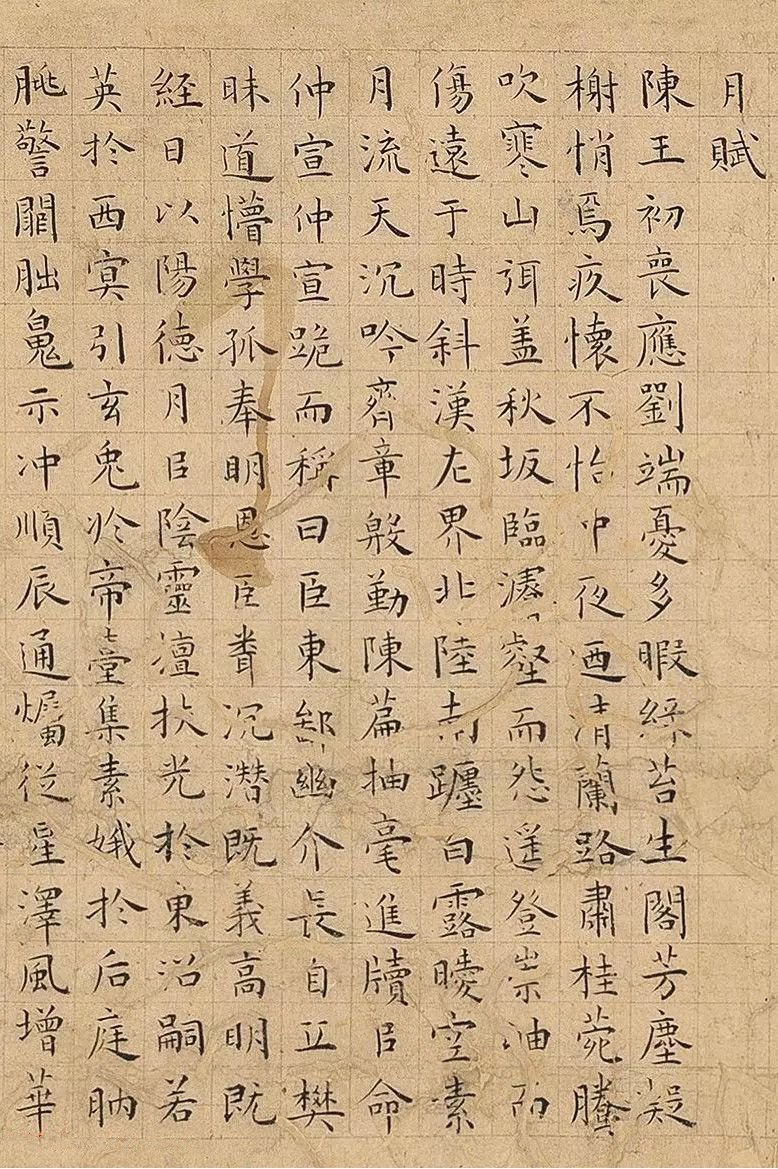 月賦
陳王初喪應劉端憂多暇綠苔生閣芳塵凝
榭悄焉疚懷不怡中夜迺清蘭路肅桂菀騰
吹寒山弭蓋秋坂臨濬壑而怨遥登崇岫而
傷遠于時斜漢左界北陸南躔白露曖空素
月流天沉吟齊章殷勤陳篇抽毫進牘以命
仲宣仲宣跪而稱曰臣東鄙幽介長自丘樊
昧道懵學孤奉明恩臣聞沉潛既義高明既
経日以陽德月以陰靈擅扶光於東沼嗣若
英於西冥引玄兔於帝臺集素娥於后庭朒
朓警闕朏魄示冲順辰通燭從星澤風增華